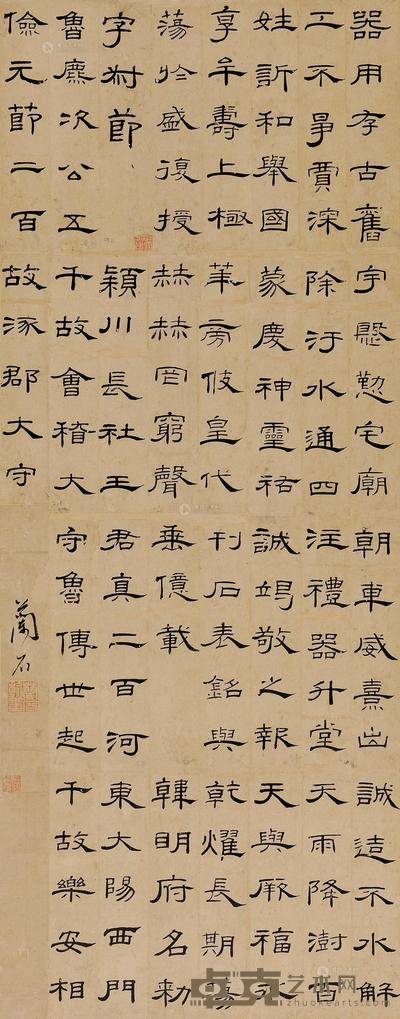 器用存古舊宇慇懃宅廟朝車威熹出誠造不水解
工不爭賈深除汙水通四注禮器升堂天雨降澍百
姓訢和舉國蒙慶神靈祐誠竭敬之報天與厥福永
享牟壽上極華旁伎皇代刊石表銘與乾燿長期蕩
蕩於盛復授赫赫罔窮聲垂億載韓明府名勑
字叔節潁川長社王君真二百河東大陽西門
魯麃次公五千故會稽大守魯傳世起千故樂安相
儉元節二百故涿郡大守
蘭石
卓克艺术网
zhuokearts.com